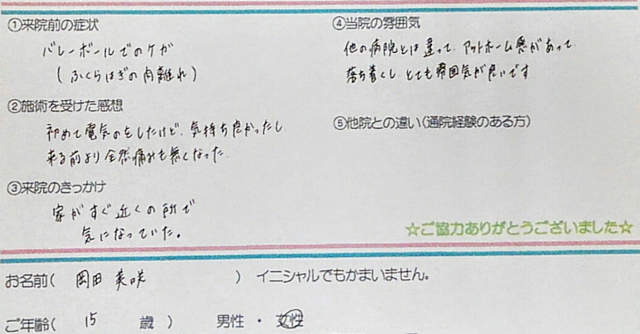 ①来院前の症状
バレーボールでのケガ
(ふくらはぎの肉離れ)
②施術を受けた感想
初めて電気のをしたけど、気持ち良かったし
来る前より全然痛みも無くなった。
③来院のきっかけ
家がすぐ近くの所で
気になっていた。
④当院の雰囲気
他の病院とは違って、アットホーム感があって
落ち着くしとても雰囲気が良いです
⑤他院との違い(通院経験のある方)
☆ご協力ありがとうございました☆
お名前( 岡田 美咲 ) イニシャルでもかまいません。
ご年齢( 15 歳 ) 男性 ・ 女性